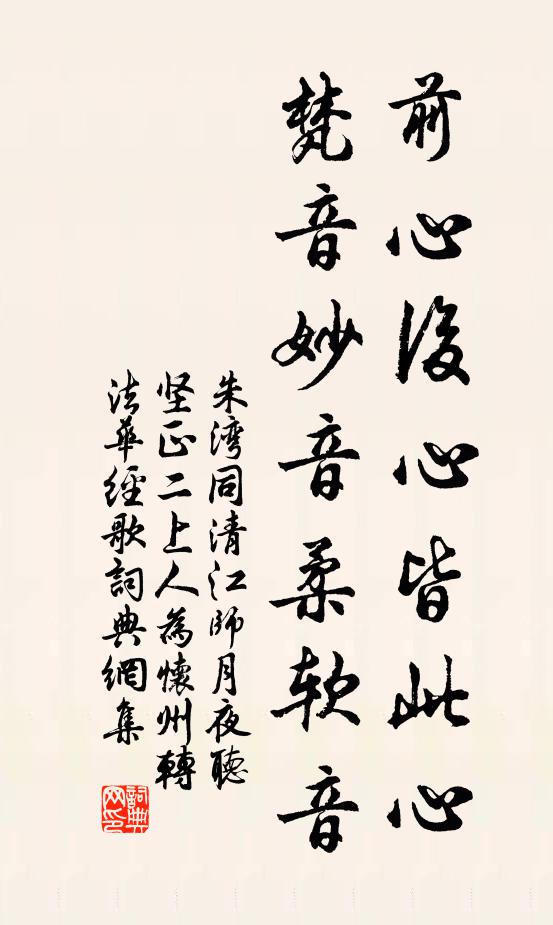 前心後心皆此心
梵音妙音柔软音
朱湾同清江师月夜聽
坚正二上人為懷州轉
法華經歌詞典網集
詞典
网印